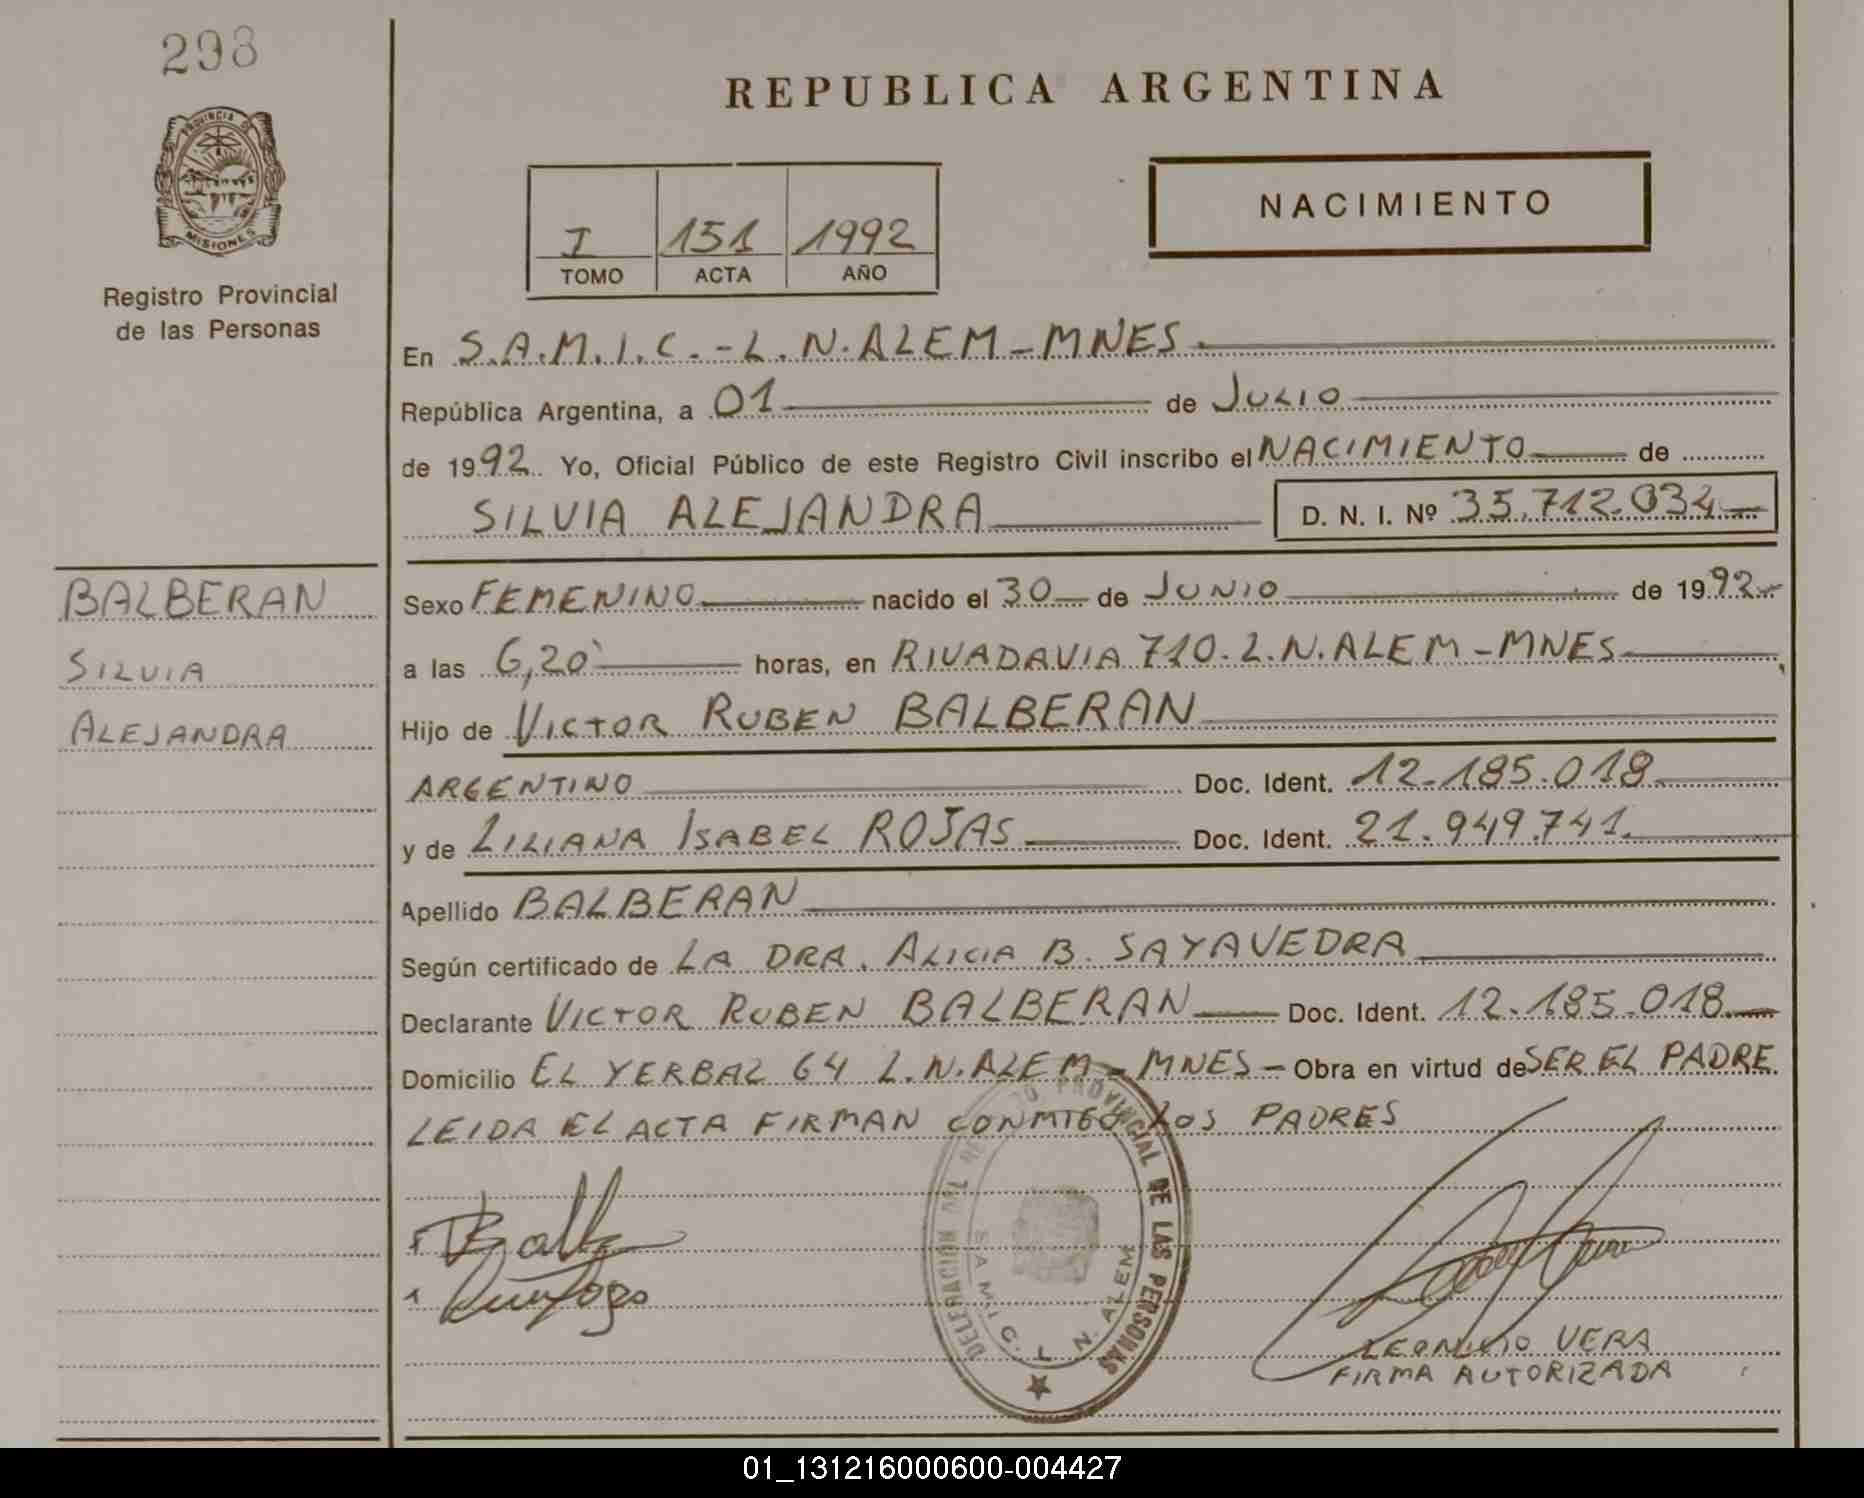 298
REPUBLICA ARGENTINA
PROVINCIA DE
MISIONES
Registro Provincial
de las Personas
I 151 1992
TOMO ACTA AÑO
NACIMIENTO
En S.A.M.I.C.-L.N.ALEM-MNES.
República Argentina, a 01 de JULIO
de 1992. Yo, Oficial Público de este Registro Civil inscribo el NACIMIENTO de
SILVIA ALEJANDRA D. N. I. Nº 35.712.034
BALBERAN
SILVIA
ALEJANDRA
Sexo FEMENINO nacido el 30 de JUNIO de 1992
a las 6,20 horas, en RIVADAVIA 710.L.N.ALEM-MNES
Hijo de VICTOR RUBEN BALBERAN
ARGENTINO Doc. Ident. 12.185.018
y de LILIANA ISABEL ROJAS Doc. Ident. 21.949.741.
Apellido BALBERAN
Según certificado de LA DRA. ALICIA B. SAYAVEDRA
Declarante VICTOR RUBEN BALBERAN Doc. Ident. 12.185.018
Domicilio EL YERBAL 64 L.N.ALEM-MNES - Obra en virtud de SER EL PADRE.
LEIDA EL ACTA FIRMAN CONMIGO LOS PADRES
PROVINCIAL DE LAS PERSONAS
DELEGACION
S.A.M.I.C. L. N. ALEM
VERA
FIRMA AUTORIZADA
01_131216000600-004427